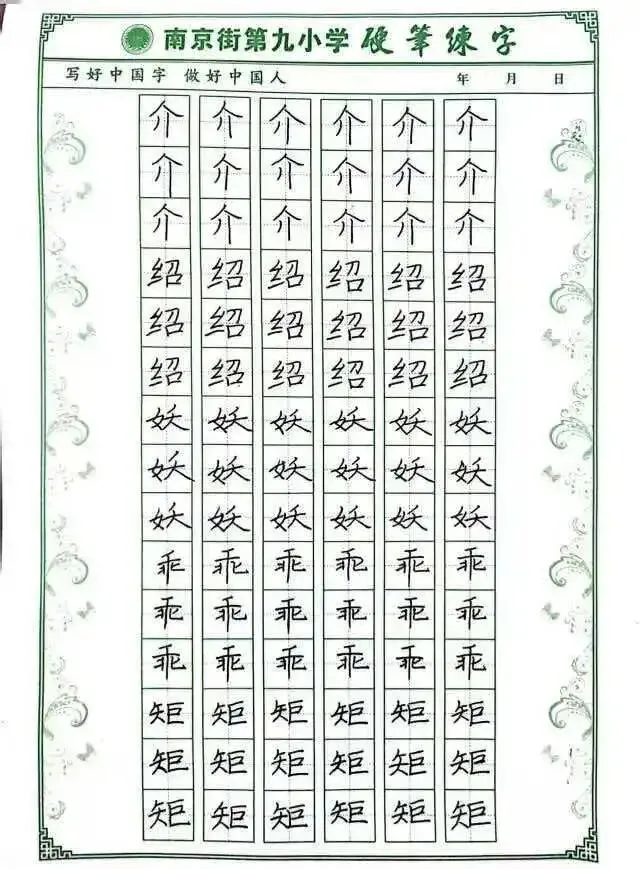 南京街第九小学 硬筆練字
写好中国字 做好中国人 年 月 日
介 介 介 介 介 介
介 介 介 介 介 介
介 介 介 介 介 介
绍 绍 绍 绍 绍 绍
绍 绍 绍 绍 绍 绍
绍 绍 绍 绍 绍 绍
妖 妖 妖 妖 妖 妖
妖 妖 妖 妖 妖 妖
妖 妖 妖 妖 妖 妖
乖 乖 乖 乖 乖 乖
乖 乖 乖 乖 乖 乖
乖 乖 乖 乖 乖 乖
矩 矩 矩 矩 矩 矩
矩 矩 矩 矩 矩 矩
矩 矩 矩 矩 矩 矩